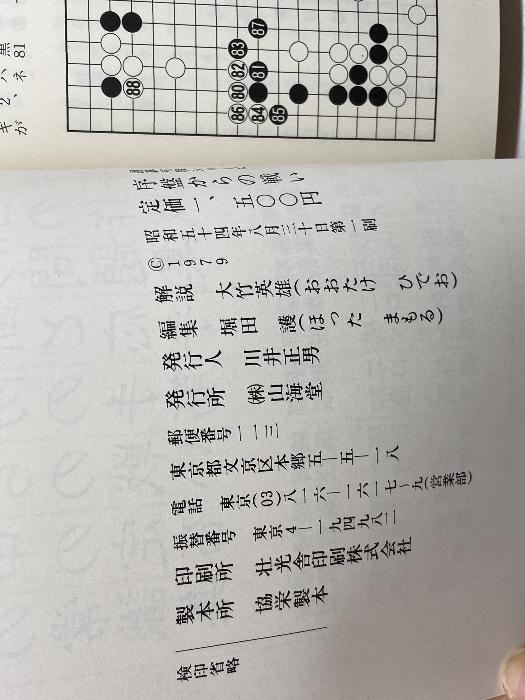 黒81
ハネ
2、
ギが
87
83
82
81
80
86
84
85
88
序盤からの戦い
定価一、五〇〇円
昭和五十四年八月三十日第一刷
© 1979
解説　大竹英雄(おおたけ　ひでお)
編集　堀田　護(ほった　まもる)
発行人　川井正男
発行所　㈱山海堂
郵便番号一一三
東京都文京区本郷五―五―一八
電話　東京(03)八一六―一六一七～九(営業部)
振替番号　東京4―一九四九八二
印刷所　壮光舎印刷株式会社
製本所　協栄製本
検印省略